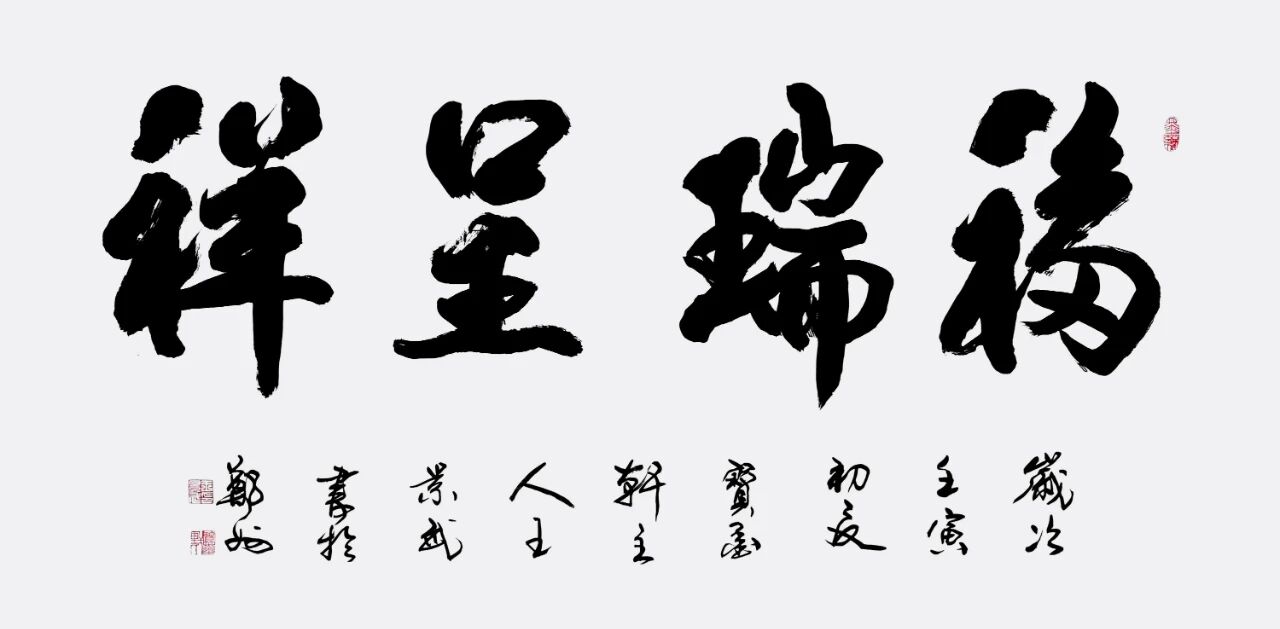 福瑞呈祥
歲次
壬寅
初夏
寶墨
軒主
人王
景武
書於
鄭州